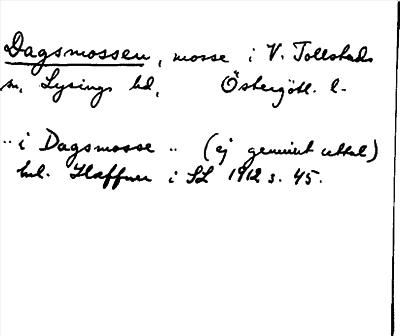 Dagsmossen, mosse i V. Tollstads
sn, Lysings hd, Östergötl. l.
"i Dagsmosse" (ej genuint uttal)
enl. Haffner i SL 1912 s. 45.